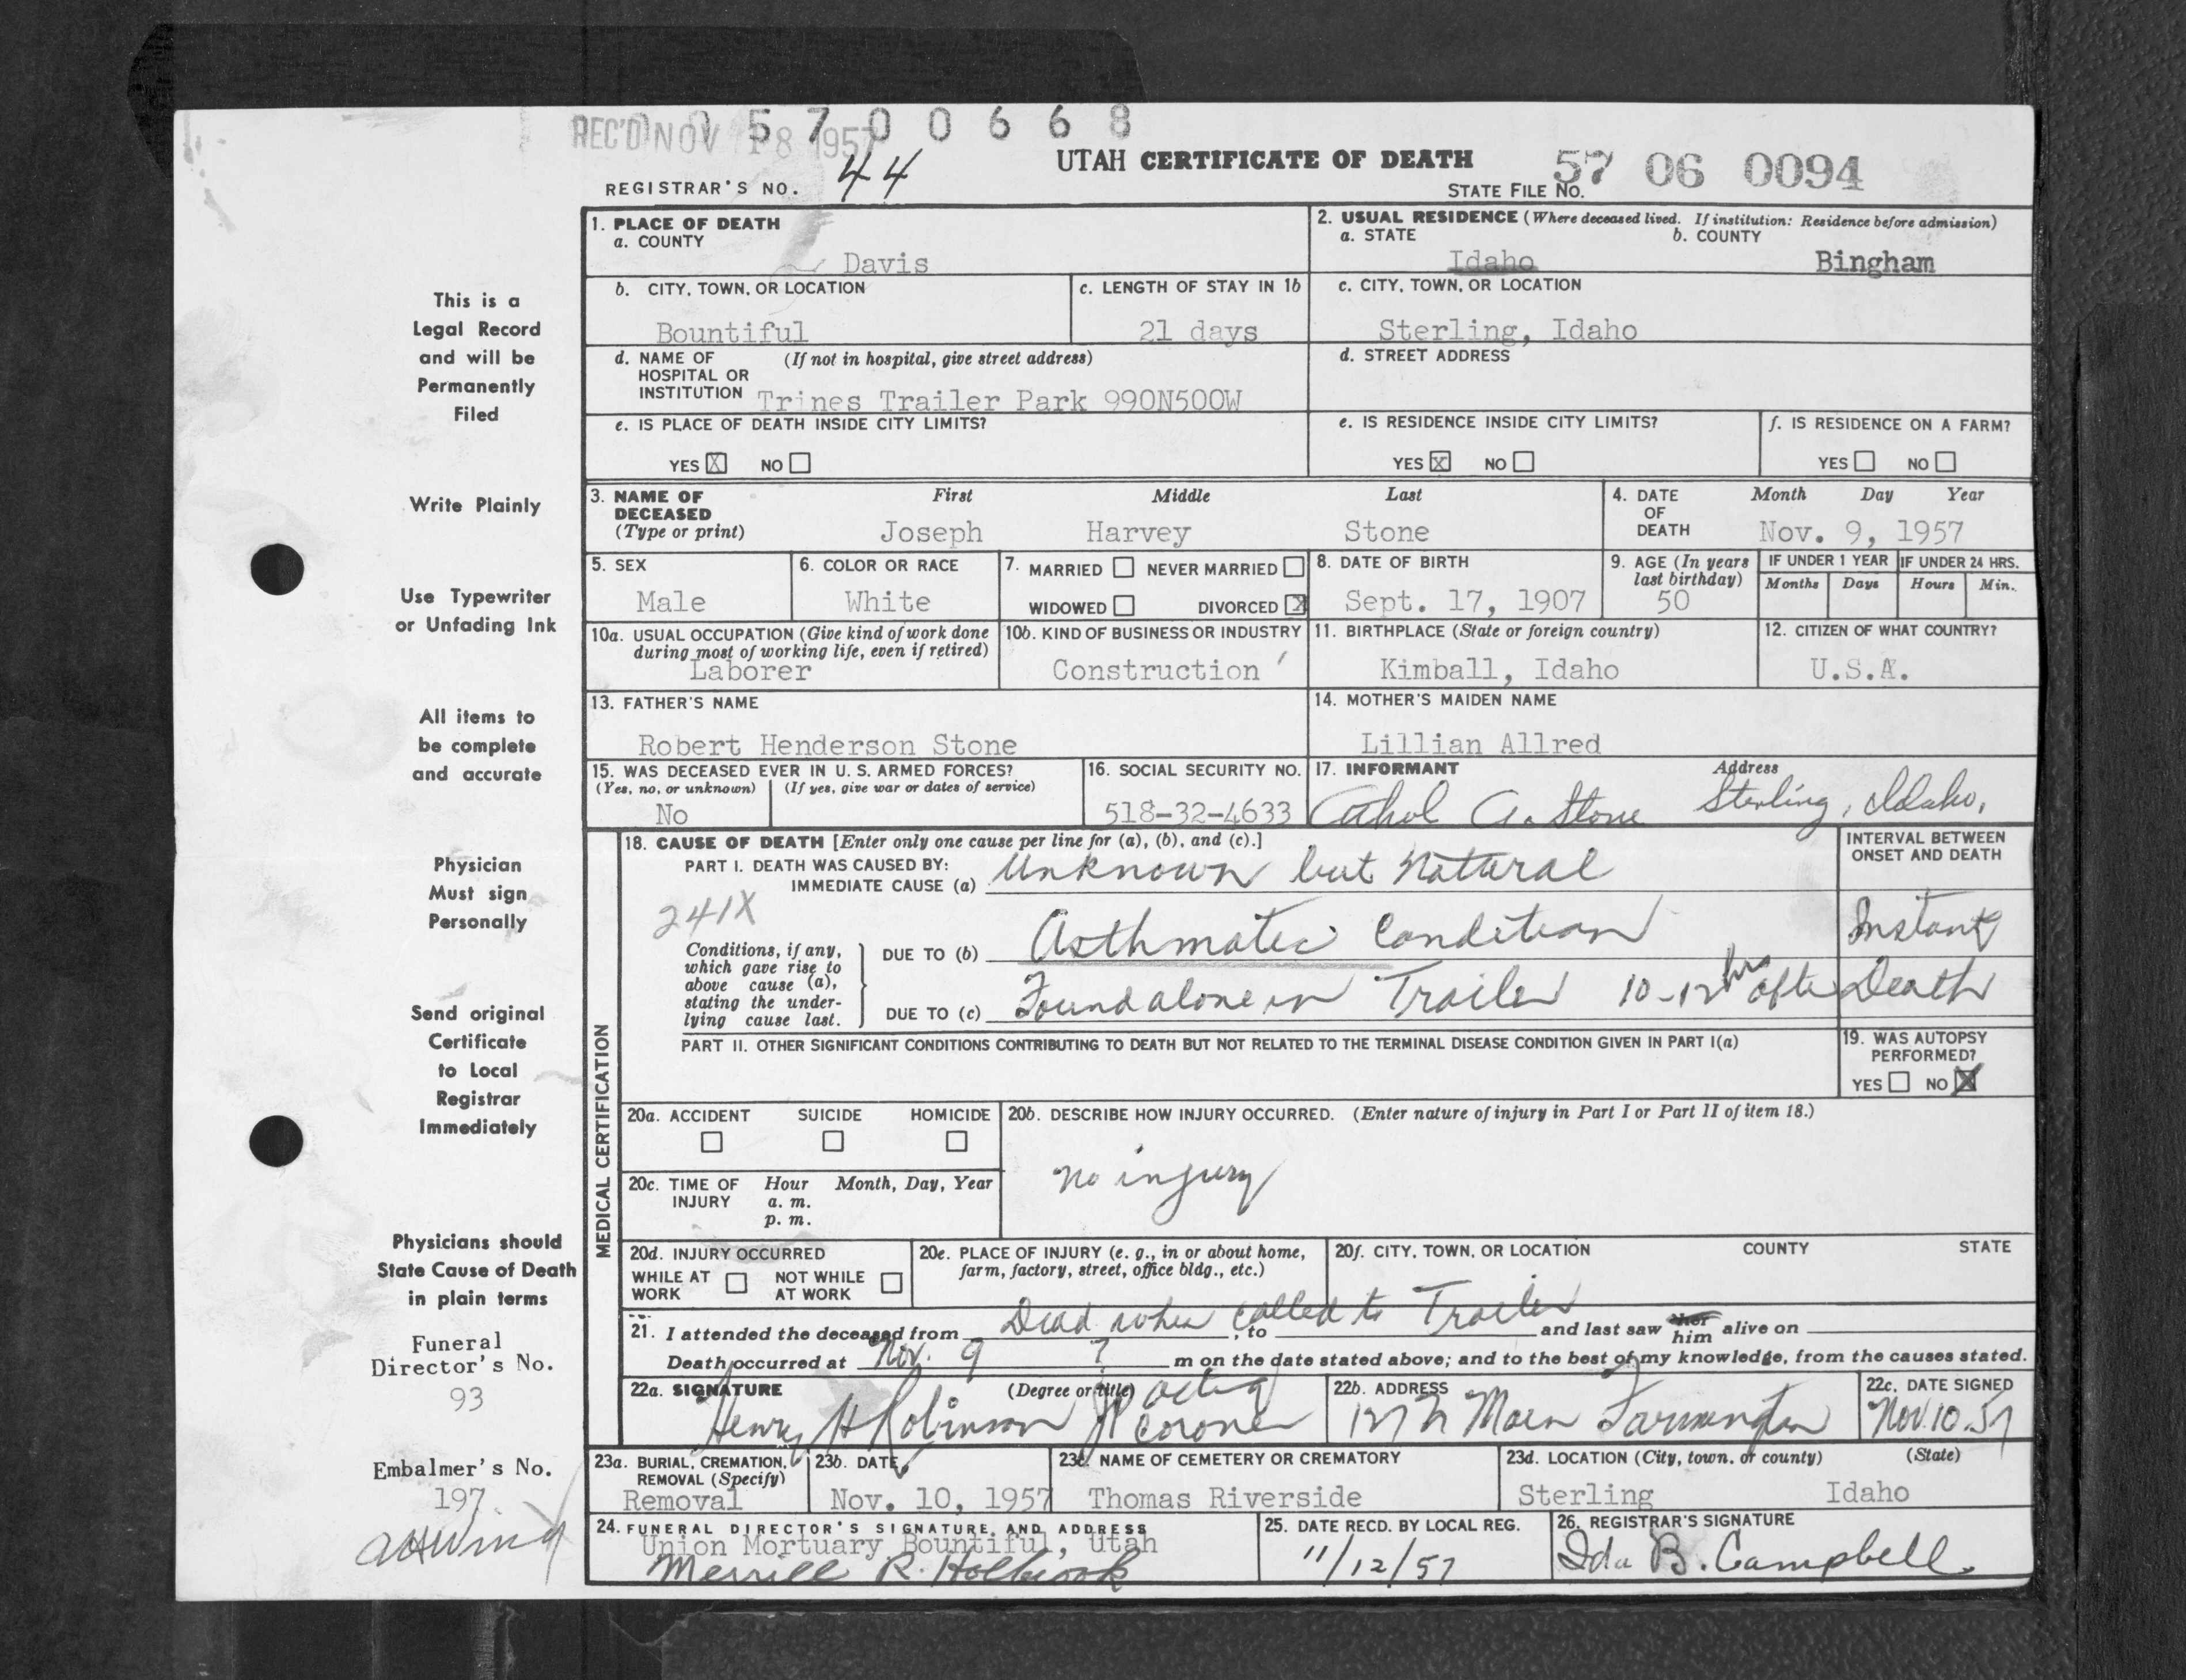 5 7 0 0 6 6 8
REC'D NOV 18 1957
UTAH CERTIFICATE OF DEATH
REGISTRAR'S NO. 44
STATE FILE NO. 57 06 0094
This is a
Legal Record
and will be
Permanently
Filed
Write Plainly
Use Typewriter
or Unfading Ink
All items to
be complete
and accurate
Physician
Must sign
Personally
Send original
Certificate
to Local
Registrar
Immediately
Physicians should
State Cause of Death
in plain terms
Funeral
Director's No.
93
Embalmer's No.
197
1. PLACE OF DEATH
a. COUNTY
Davis
2. USUAL RESIDENCE (Where deceased lived. If institution: Residence before admission)
a. STATE b. COUNTY
Idaho Bingham
b. CITY, TOWN, OR LOCATION
Bountiful
c. LENGTH OF STAY IN 1b
21 days
c. CITY, TOWN, OR LOCATION
Sterling, Idaho
d. NAME OF (If not in hospital, give street address)
HOSPITAL OR
INSTITUTION Trines Trailer Park 990N500W
d. STREET ADDRESS
e. IS PLACE OF DEATH INSIDE CITY LIMITS?
YES X NO
e. IS RESIDENCE INSIDE CITY LIMITS?
YES X NO
f. IS RESIDENCE ON A FARM?
YES NO
3. NAME OF First Middle Last
DECEASED
(Type or print) Joseph Harvey Stone
4. DATE Month Day Year
OF
DEATH Nov. 9, 1957
5. SEX
Male
6. COLOR OR RACE
White
7. MARRIED NEVER MARRIED
WIDOWED DIVORCED X
8. DATE OF BIRTH
Sept. 17, 1907
9. AGE (In years
last birthday)
50
IF UNDER 1 YEAR IF UNDER 24 HRS.
Months Days Hours Min.
10a. USUAL OCCUPATION (Give kind of work done
during most of working life, even if retired)
Laborer
10b. KIND OF BUSINESS OR INDUSTRY
Construction
11. BIRTHPLACE (State or foreign country)
Kimball, Idaho
12. CITIZEN OF WHAT COUNTRY?
U.S.A.
13. FATHER'S NAME
Robert Henderson Stone
14. MOTHER'S MAIDEN NAME
Lillian Allred
15. WAS DECEASED EVER IN U. S. ARMED FORCES?
(Yes, no, or unknown) (If yes, give war or dates of service)
No
16. SOCIAL SECURITY NO.
518-32-4633
17. INFORMANT Address
A. Stone Sterling, Idaho.
MEDICAL CERTIFICATION
18. CAUSE OF DEATH [Enter only one cause per line for (a), (b), and (c).]
PART I. DEATH WAS CAUSED BY:
IMMEDIATE CAUSE (a) Unknown but Natural
241X
Conditions, if any,
which gave rise to
above cause (a),
stating the under-
lying cause last.
DUE TO (b) Asthmatic Condition
DUE TO (c) Found alone in Trailer 10-12 hrs after Death
INTERVAL BETWEEN
ONSET AND DEATH
Instant
PART II. OTHER SIGNIFICANT CONDITIONS CONTRIBUTING TO DEATH BUT NOT RELATED TO THE TERMINAL DISEASE CONDITION GIVEN IN PART I(a)
19. WAS AUTOPSY
PERFORMED?
YES NO X
20a. ACCIDENT SUICIDE HOMICIDE
20b. DESCRIBE HOW INJURY OCCURRED. (Enter nature of injury in Part I or Part II of item 18.)
no injury
20c. TIME OF Hour Month, Day, Year
INJURY a. m.
p. m.
20d. INJURY OCCURRED
WHILE AT NOT WHILE
WORK AT WORK
20e. PLACE OF INJURY (e. g., in or about home,
farm, factory, street, office bldg., etc.)
20f. CITY, TOWN, OR LOCATION COUNTY STATE
Dead when called to Trailer
21. I attended the deceased from , to and last saw her him alive on
Death occurred at Nov. 9 ? m on the date stated above; and to the best of my knowledge, from the causes stated.
22a. SIGNATURE (Degree or title)
Henry H Robinson JP acting Coroner
22b. ADDRESS
127 N Main Farmington
22c. DATE SIGNED
Nov. 10. 57
23a. BURIAL, CREMATION,
REMOVAL (Specify)
Removal
23b. DATE
Nov. 10, 1957
23c. NAME OF CEMETERY OR CREMATORY
Thomas Riverside
23d. LOCATION (City, town, or county) (State)
Sterling Idaho
24. FUNERAL DIRECTOR'S SIGNATURE AND ADDRESS
Union Mortuary Bountiful, Utah
Merrill R. Holbrook
25. DATE RECD. BY LOCAL REG.
11/12/57
26. REGISTRAR'S SIGNATURE
Ida B. Campbell